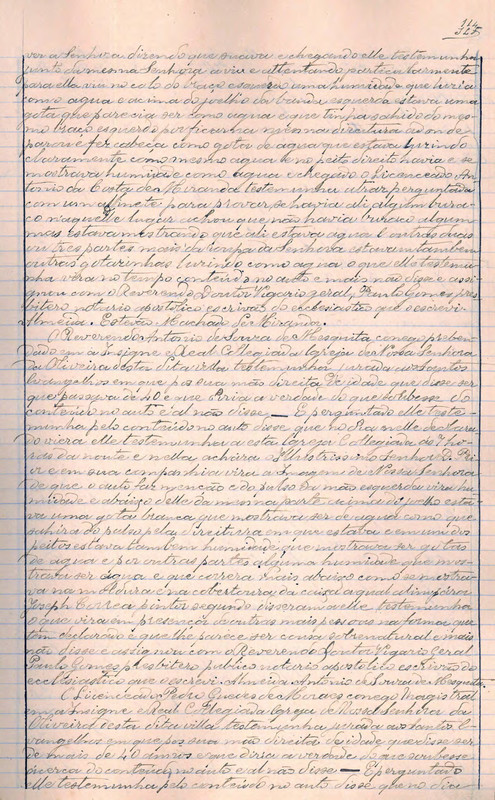 314
325
ver a Senhora dizendo que suava e chegando elle testemunha
junto da mesma Senhora a viu e attentando particularmente
para ella viu no colo do braço esquerdo uma humidade que luzia
como agua e acima do joelho da banda esquerda estava uma
gota que parecia ser como agua e que tinha sahido do mes-
mo braço esquerdo por ficar na mesma direitura aonde
parou e fez cabeça como gota de agua que estava luzindo
claramente como mesmo agua e no peito direito havia e se
mostrava humidade como agua e chegado o Licenceado An-
tonio da Costa de Miranda testemunha abaixo perguntada
com um alfinete para provar se havia ali algum bura-
co n'aquelle lugar achou que não havia buraco algum
mas estava mostrando que ali estava agua e outras duas
ou tres partes mais da roupa da Senhora estavam tambem
outras gotasinhas luzindo como agua o que elle testemu-
nha vira no tempo conteudo no auto e mais não disse e assi-
gnou com o Reverendo Doutor Vigario geral, Paulo Gomes pres-
bitero notario apostolico escrivão do eclesiastico que o escrevi
Almeida. Estevão Machado de Miranda.
O Reverendo Antonio de Souza de Mesquita conego preben-
dado em a Insigne e Real Collegiada Igreja de Nossa Senhora
da Oliveira desta dita villa testemunha jurada aos Santos
Evangelhos em que pos sua mão direita de idade que disse ser
que passava de 40 e que diria a verdade do que soubesse do
conteudo no auto e al não disse — E perguntado elle teste-
munha pelo conteudo no auto disse que no dia nelle declara-
do viera elle testemunha a esta Igreja e Collegiada as 7 ho-
ras da noute e nella achara o Illustrissimo Senhor D. Pri-
or e em sua companhia vira a Imagem de Nossa Senhora
de que o auto faz menção e do pulso da mão esquerda vira hu-
midade e abaixo delle da mesma parte acima do joelho esta-
va uma gota branca que mostrava ser de agua como que
sahira do pulso pela direitura em que estava e em um dos
peitos estava tambem humidade que mostrava ser gotas
de agua e por outras partes alguma humidade que mos-
trava ser agua e que correra mais abaixo como se mostra-
va na moldura e na cobertura da caixa a qual alimpára
Joseph Correa pintor segundo disseram a elle testemunha
o que vira em presença de outras mais pessoas na forma que
tem declarado e que lhe parece ser cousa sobrenatural e mais
não disse e assignou com o Reverendo Doutor Vigario Geral
Paulo Gomes presbitero publico notario apostolico escrivão do
ecclesiastico que o escrevi. Almeida Antonio de Souza de Mesquita
O Licenceado Pedro Gueves de Moraes conego Magistral
em a Insigne e Real Collegiada Igreja de Nossa Senhora da
Oliveira desta dita villa testemunha jurada aos Santos E-
vangelhos em que pos sua mão direita de idade que disse ser
de mais de 40 annos e que diria a verdade do que soubesse
acerca do conteudo no auto e al não disse — E perguntado
elle testemunha pelo conteudo no auto disse que no dia